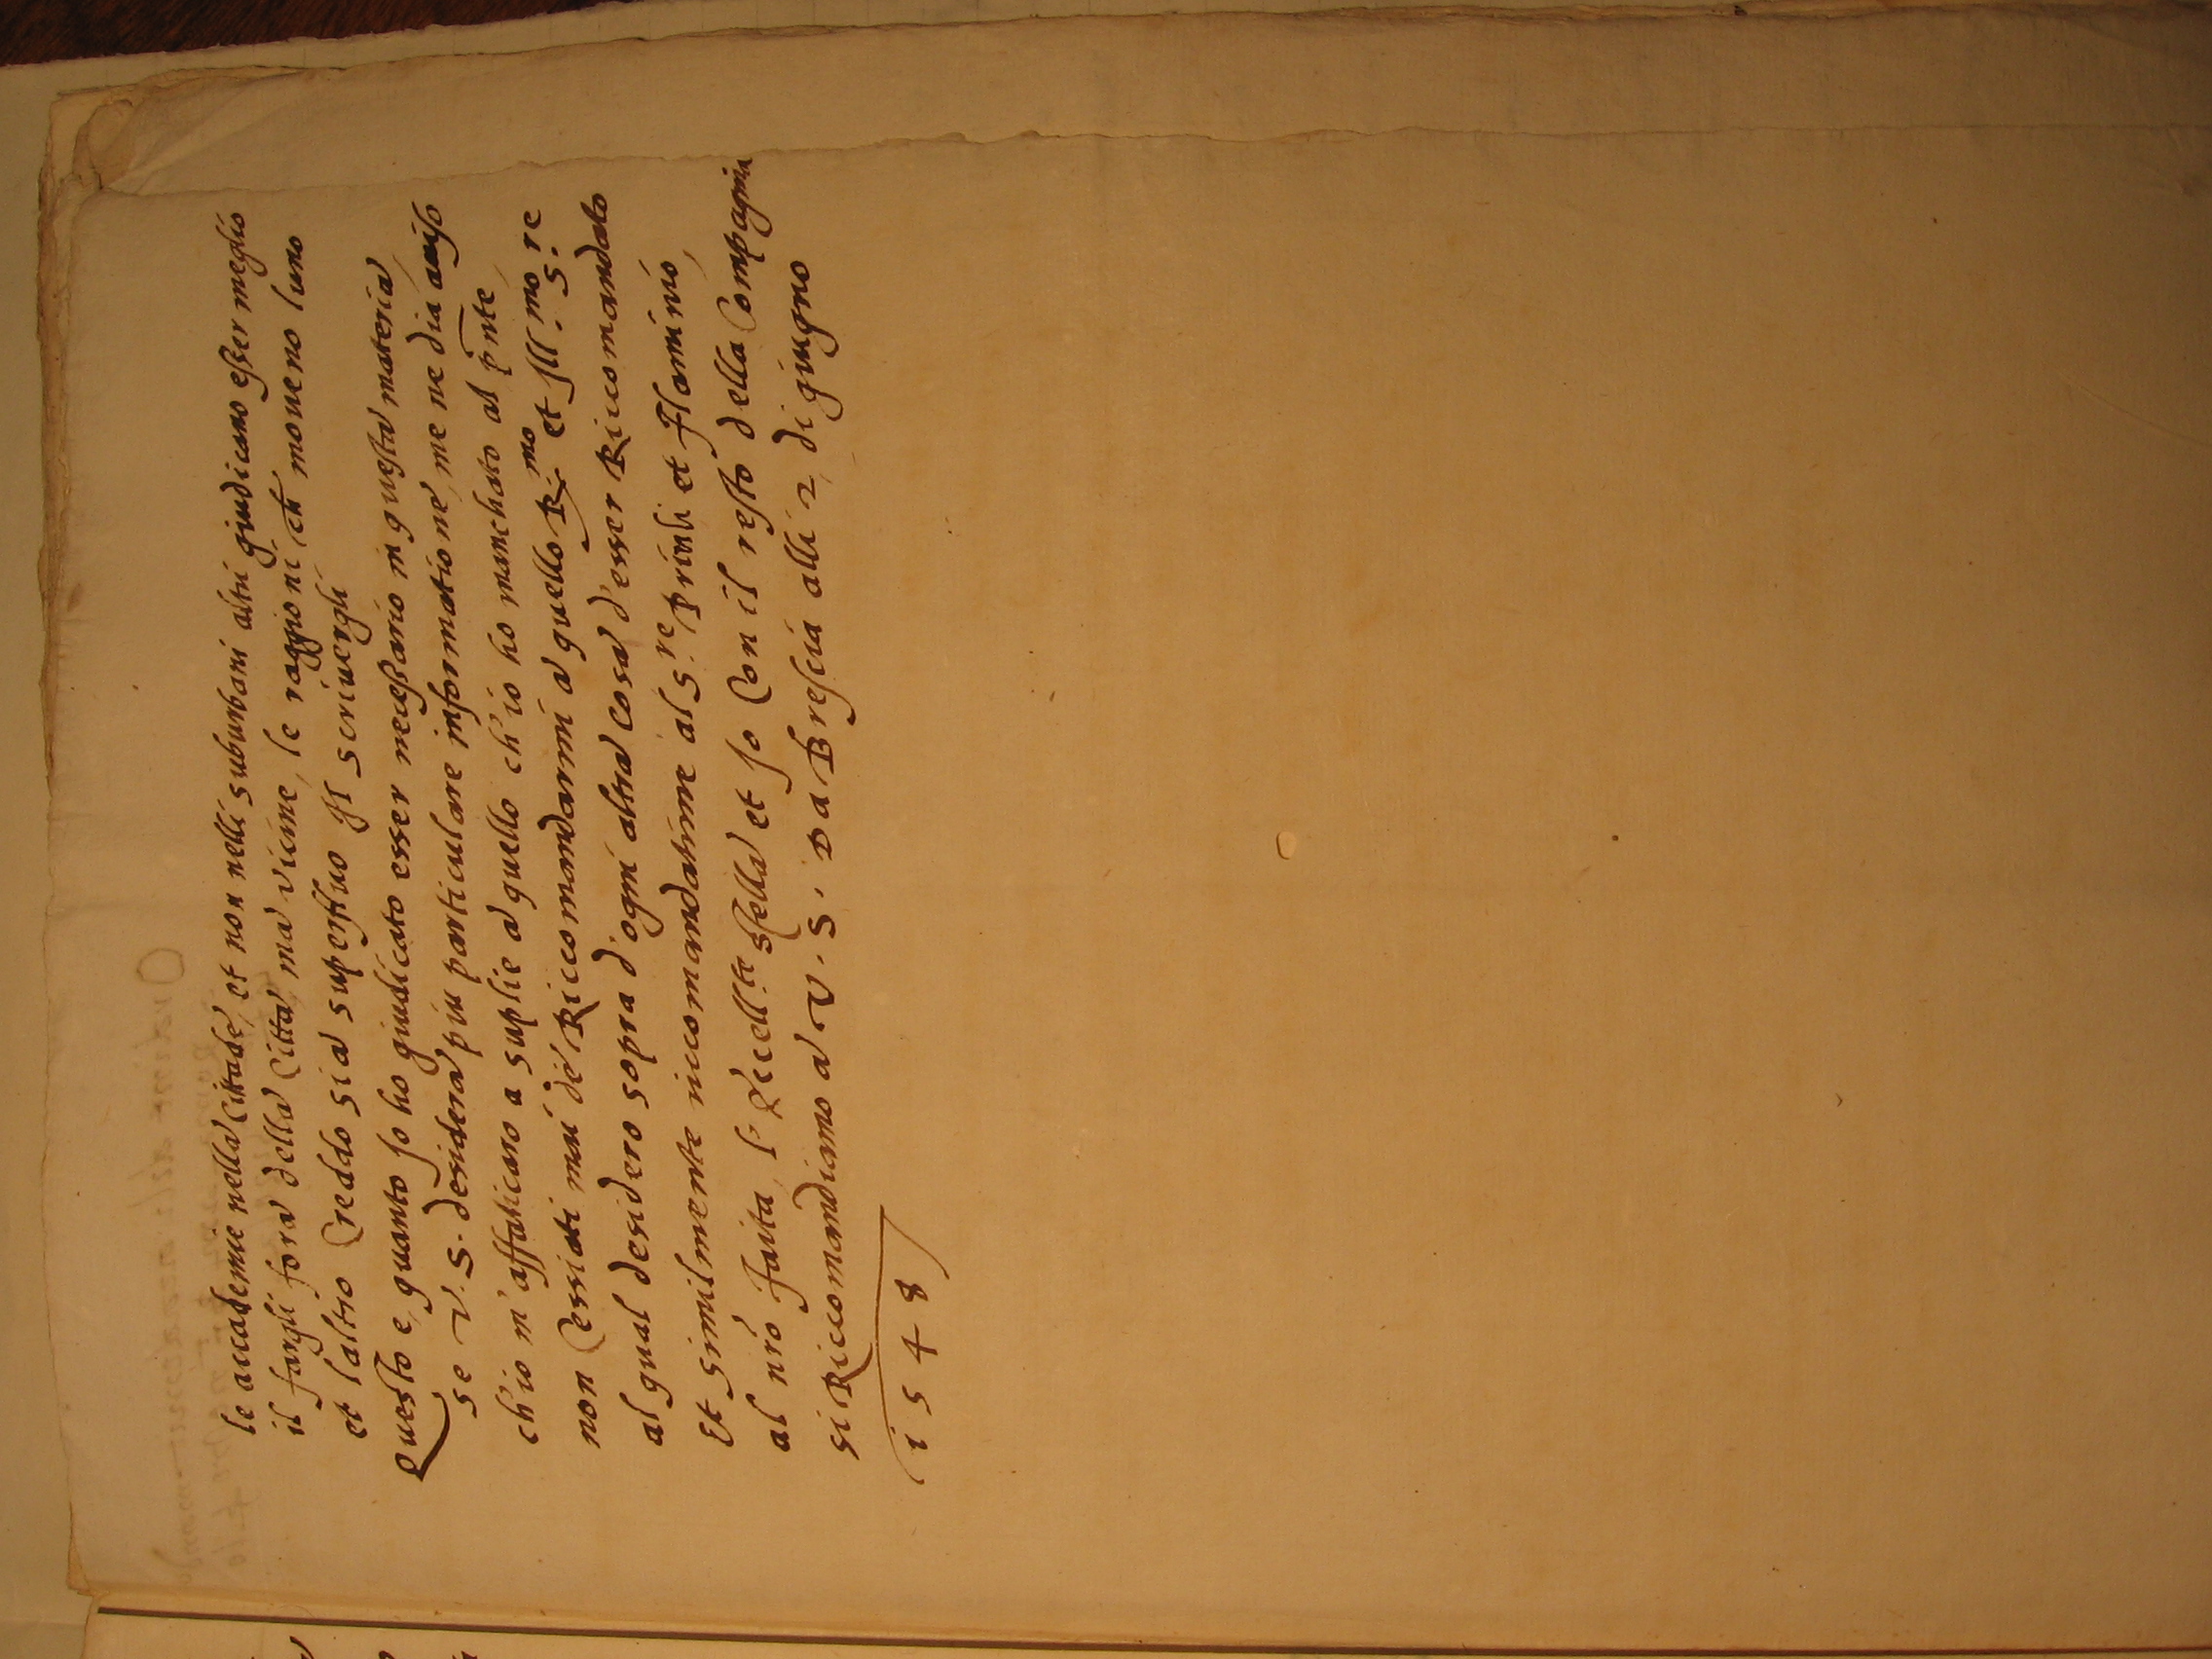 le accademie nella cittade, et non nelli suburbani altri giudicano esser meglio
il fargli fora della Città ma vicine, le raggioni ch moueno luno
et laltro Creddo sia superfluo gl scriuergli
Questo e, quanto Io ho giudicato esser necessario in questa materia,
se V. S. desidera più particulare informatione, me ne dia auiso
ch'io m'affaticaro a suplie a quello ch'io ho manchato al pnte,
non Cessiati mai de Riccomandarmi a quello R.mo et Ill.mo S.re
al qual desidero sopra d'ogni altra cosa d'esser Riccomandato
Et similmente riccomandatime al S.re Priuli et Flaminio,
al nro Faita, l'Eccell.te Stella et Io Con il resto della Compagnia
si Riccomandiamo a V. S. Da Brescia alli 2 di giugno
1548